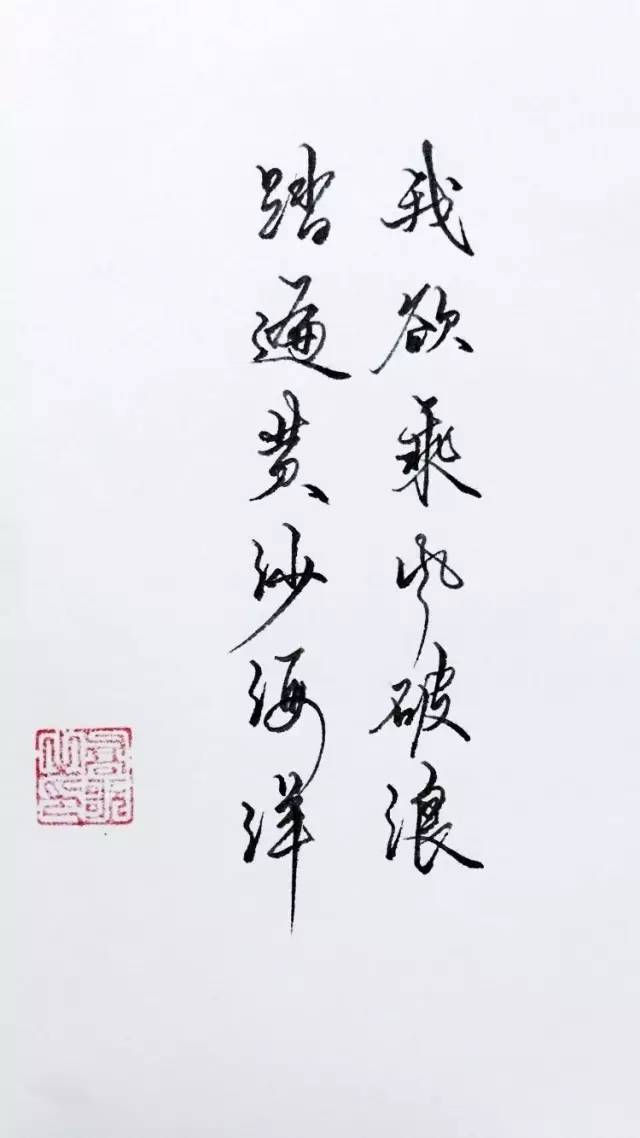 我欲乘风破浪
踏遍黄沙海洋